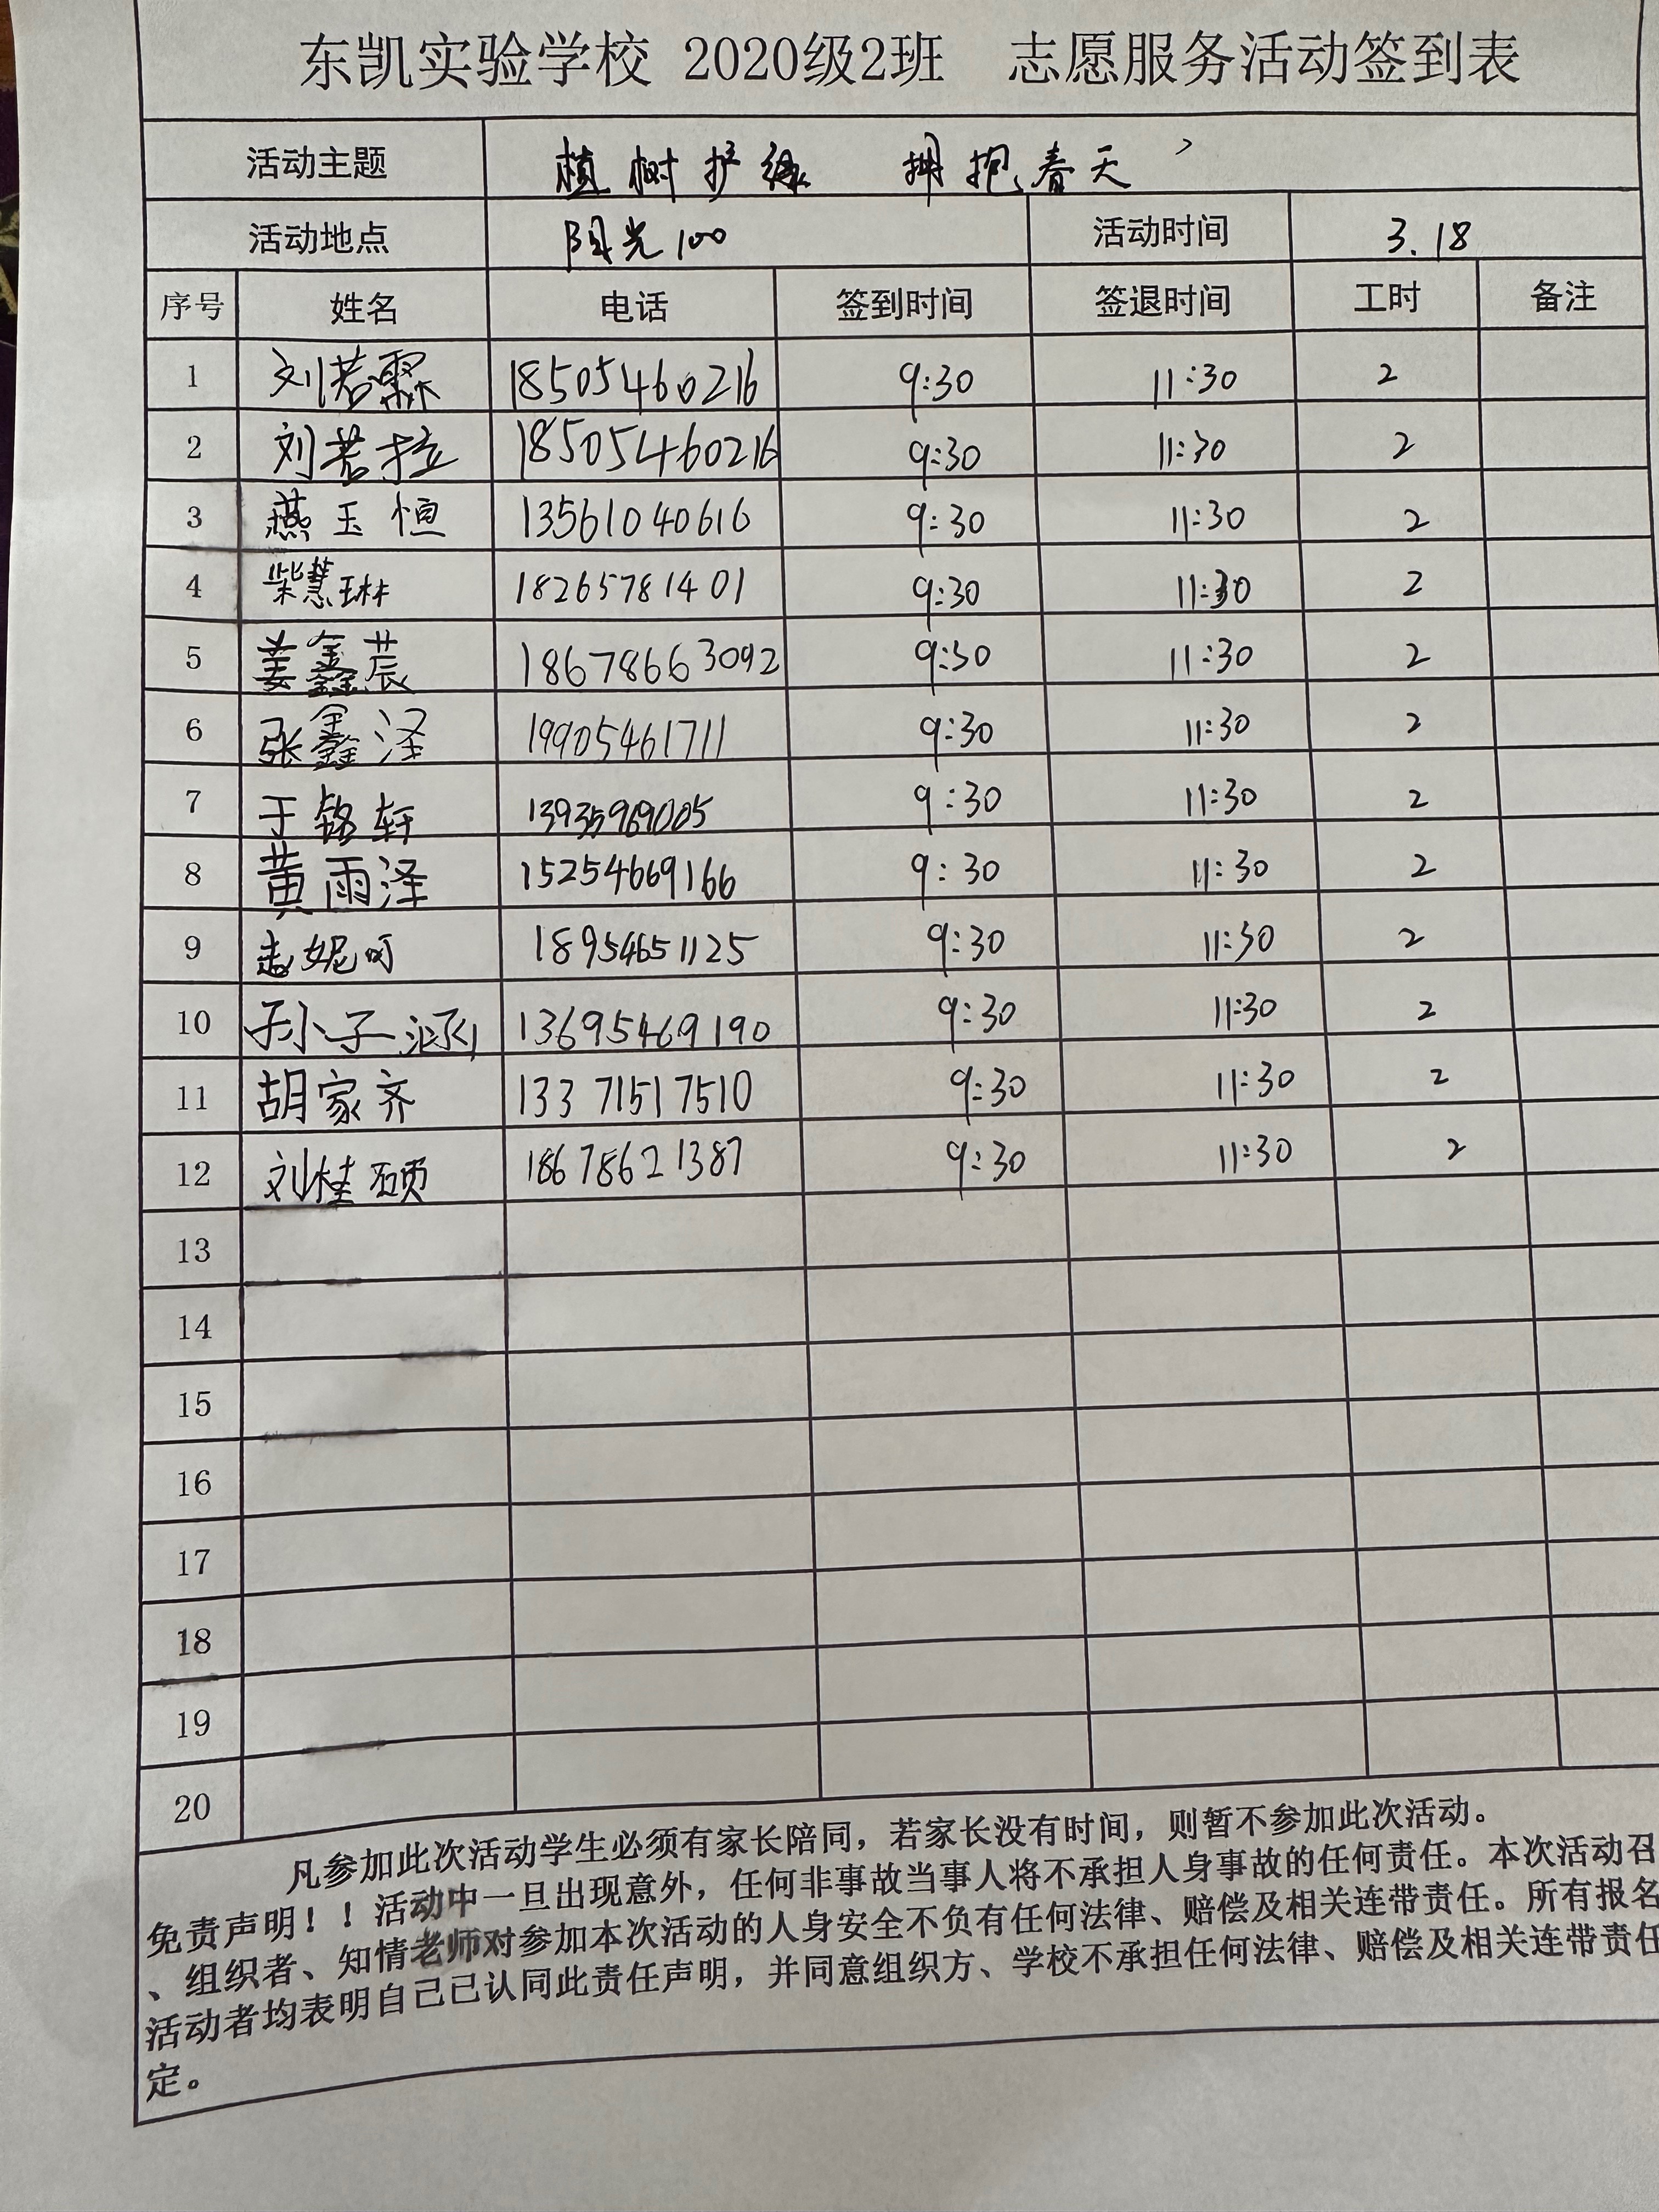 东凯实验学校 2020级2班 志愿服务活动签到表
活动主题 植树护绿 拥抱春天
活动地点 阳光100 活动时间 3.18
序号 姓名 电话 签到时间 签退时间 工时 备注
1 刘若霖 18505460216 9:30 11:30 2
2 刘若拉 18505460216 9:30 11:30 2
3 燕玉恒 13561040616 9:30 11:30 2
4 柴慧琳 18265781401 9:30 11:30 2
5 姜鑫蕊 18678663092 9:30 11:30 2
6 张鑫泽 19905461711 9:30 11:30 2
7 于铭轩 9:30 11:30 2
8 黄雨泽 15254669166 9:30 11:30 2
9 18954651125 9:30 11:30 2
10 孙子涵 13695469190 9:30 11:30 2
11 胡家齐 13371517510 9:30 11:30 2
12 刘桂硕 18678621387 9:30 11:30 2
13
14
15
16
17
18
19
20
凡参加此次活动学生必须有家长陪同，若家长没有时间，则暂不参加此次活动。
免责声明！！活动中一旦出现意外，任何非事故当事人将不承担人身事故的任何责任。本次活动召
、组织者、知情老师对参加本次活动的人身安全不负有任何法律、赔偿及相关连带责任。所有报名
活动者均表明自己已认同此责任声明，并同意组织方、学校不承担任何法律、赔偿及相关连带责任
定。